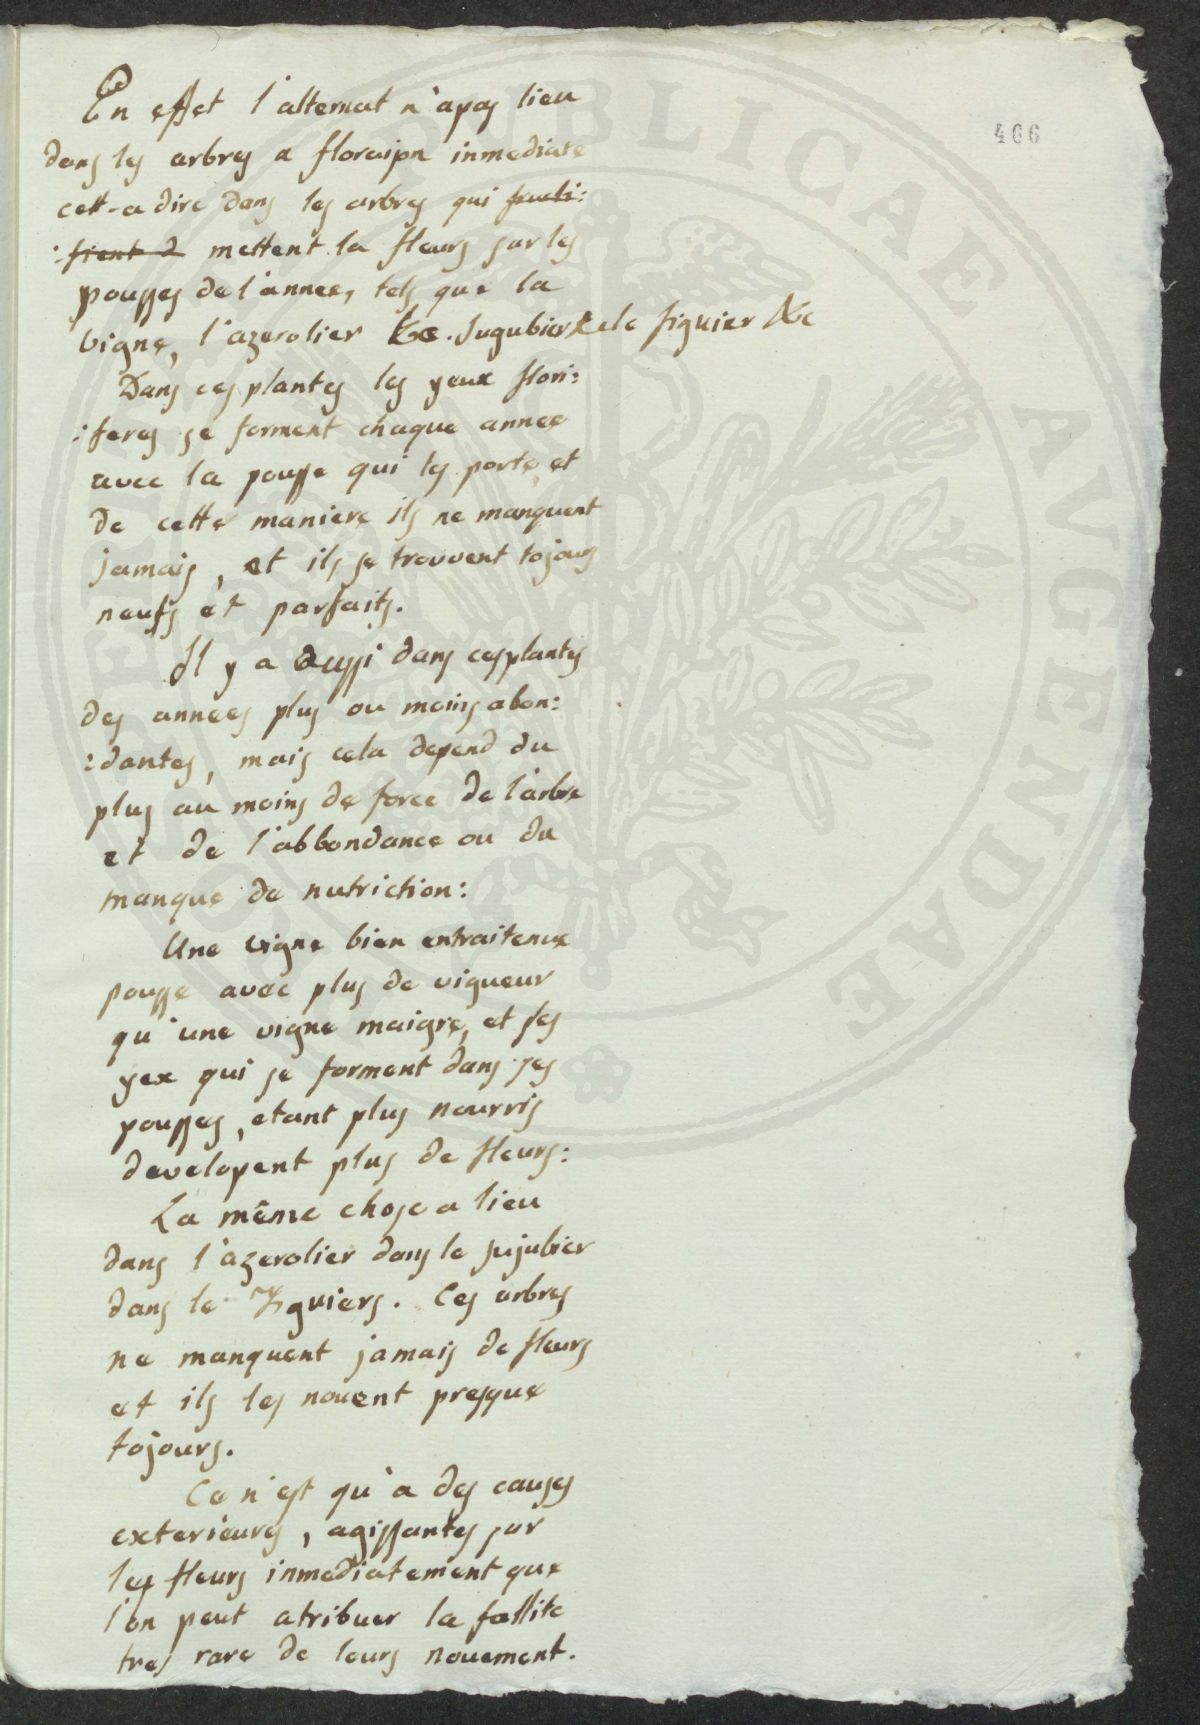 466
En effet l'alternat n'a pas lieu
dans les arbres a floraison inmediate
cett-a dire dans les arbres qui fructi:
:fient d mettent la fleurs sur les
pousses de l'annee, tels que la
vigne, l'azerolier &c. Jugubier & le figuier &c
Dans ces plantes les yeux flori:
:feres se forment chaque annee
avec la pousse qui les porte, et
de cette maniere ils ne manquent
jamais, et ils se trouvent tojours
neufs et parfaits.
Il y a aussi dans ces plantes
des annees plus ou moins abon:
:dantes, mais cela depend du
plus au moins de force de l'arbre
et de l'abbondance ou du
manque de nutriction:
Une vigne bien entraitenue
pousse avec plus de vigueur
qu'une vigne maigre, et ses
yex qui se forment dans ses
pousses, etant plus nourris
developent plus de fleurs:
La même chose a lieu
dans l'azerolier dans le jujubier
dans le figuiers. Ces arbres
ne manquent jamais de fleurs
et ils les nouent presque
tojours.
Ce n'est qu'a des causes
exterieures, agissantes sur
les fleurs inmediatement que
l'on peut atribuer la fallite
tres rare de leurs nouement.
PUBLICAE AVGENDAE